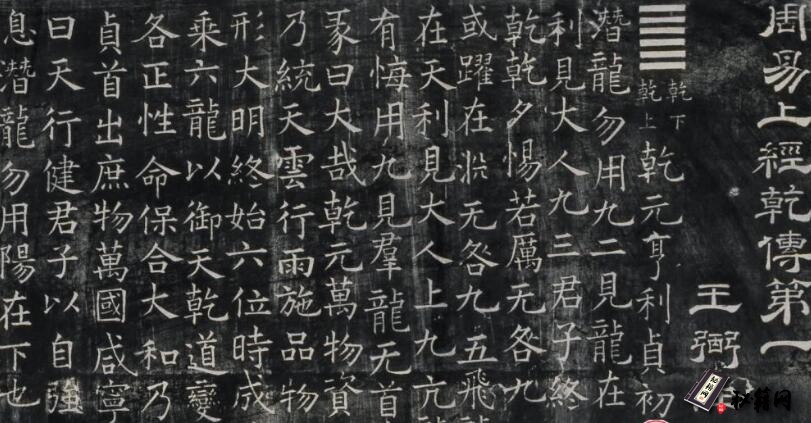 周易上經乾傳第一
王弼
乾下
乾上
乾元亨利貞初
潛龍勿用九二見龍在
利見大人九三君子終
乾乾夕惕若厲无咎九
或躍在淵无咎九五飛龍
在天利見大人上九亢龍
有悔用九見羣龍无首
彖曰大哉乾元萬物資
乃統天雲行雨施品物
形大明終始六位時成
乘六龍以御天乾道變
各正性命保合大和乃
貞首出庶物萬國咸寧
曰天行健君子以自強
息潛龍勿用陽在下也
秘籍网